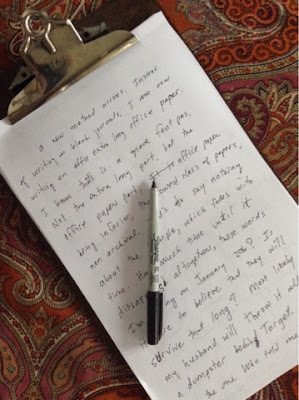 a new method arises. Instead
of writing in blank journals, I am now
writing on office extra long office paper.
I know that's is a grave faut pas.
Not the extra long part, but the
office paper part. It office paper
being inferior, the class of papers,
non archival, to say nothing
about the which fades with
time. How much time until it
disappears altogether, these words
I'm on January 2018? Is
to believe that they will
survive that long? Most likely
my husband will throw it all
a dumpster behind Target.
the one who told me